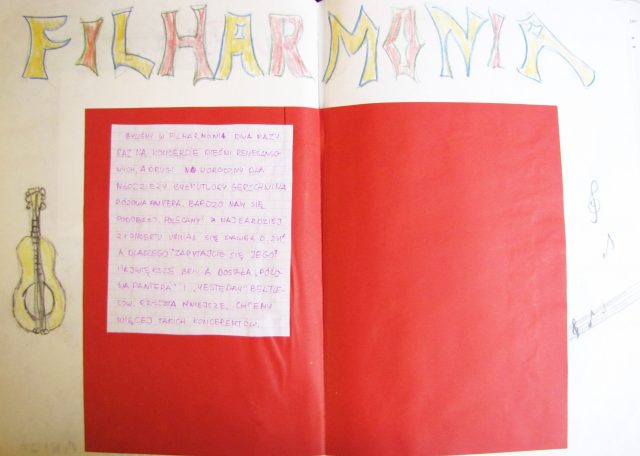 FILHARMONIA
BYLIŚMY W FILHARMONII DWA RAZY
RAZ NA KONCERCIE PIEŚNI RENESANSO-
WYCH, A DRUGI NA DLA
MŁODZIEŻY. BYŁY UTWORY GERSCHWINA
RÓŻOWA PANTERA. BARDZO NAM SIĘ
PODOBAŁO. POLECAMY. NAJBARDZIEJ
Z KONCERTU SIĘ
A DLACZEGO ZAPYTAJCIE SIĘ JEGO!
NAJWIĘKSZE BRAWA DOSTAŁA „RÓŻO-
WA PANTERA" I „YESTERDAY" BEATLE-
SÓW. RESZTA MNIEJSZE. CHCEMY
WIĘCEJ TAKICH KONCERTÓW.